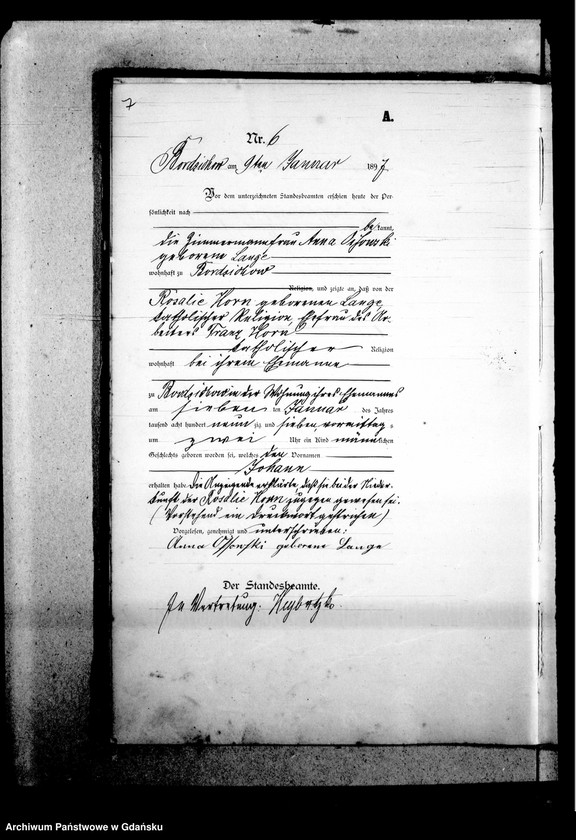 7
A.
Nr. 6
Bordzichow am 9ten Januar 1897
Vor dem unterzeichneten Standesbeamten erschien heute der Per-
sönlichkeit nach
bekannt,
die Zimmermannfrau Anna Ossowski
geborene Lange
wohnhaft zu Bordzichow
Religion, und zeigte an, daß von der
Rosalie Horn geborenen Lange
katholischer Religion, Ehefrau des Ar-
beiters Franz Horn
katholischer Religion
wohnhaft bei ihrem Ehemanne
zu Bordzichow in der Wohnung ihres Ehemannes
am sieben ten Januar des Jahres
tausend acht hundert neunzig und sieben, vormittags
um zwei Uhr ein Kind männlichen
Geschlechts geboren worden sei, welches den Vornamen
Johann
erhalten habe. Die Anzeigende erklärte, daß sie bei der Nieder-
kunft der Rosalie Horn zugegen gewesen sei.
(Vorstehend ein Druckwort gestrichen)
Vorgelesen, genehmigt und unterschrieben:
Anna Ossowski geborene Lange
Der Standesbeamte.
In Vertretung:
Archiwum Państwowe w Gdańsku